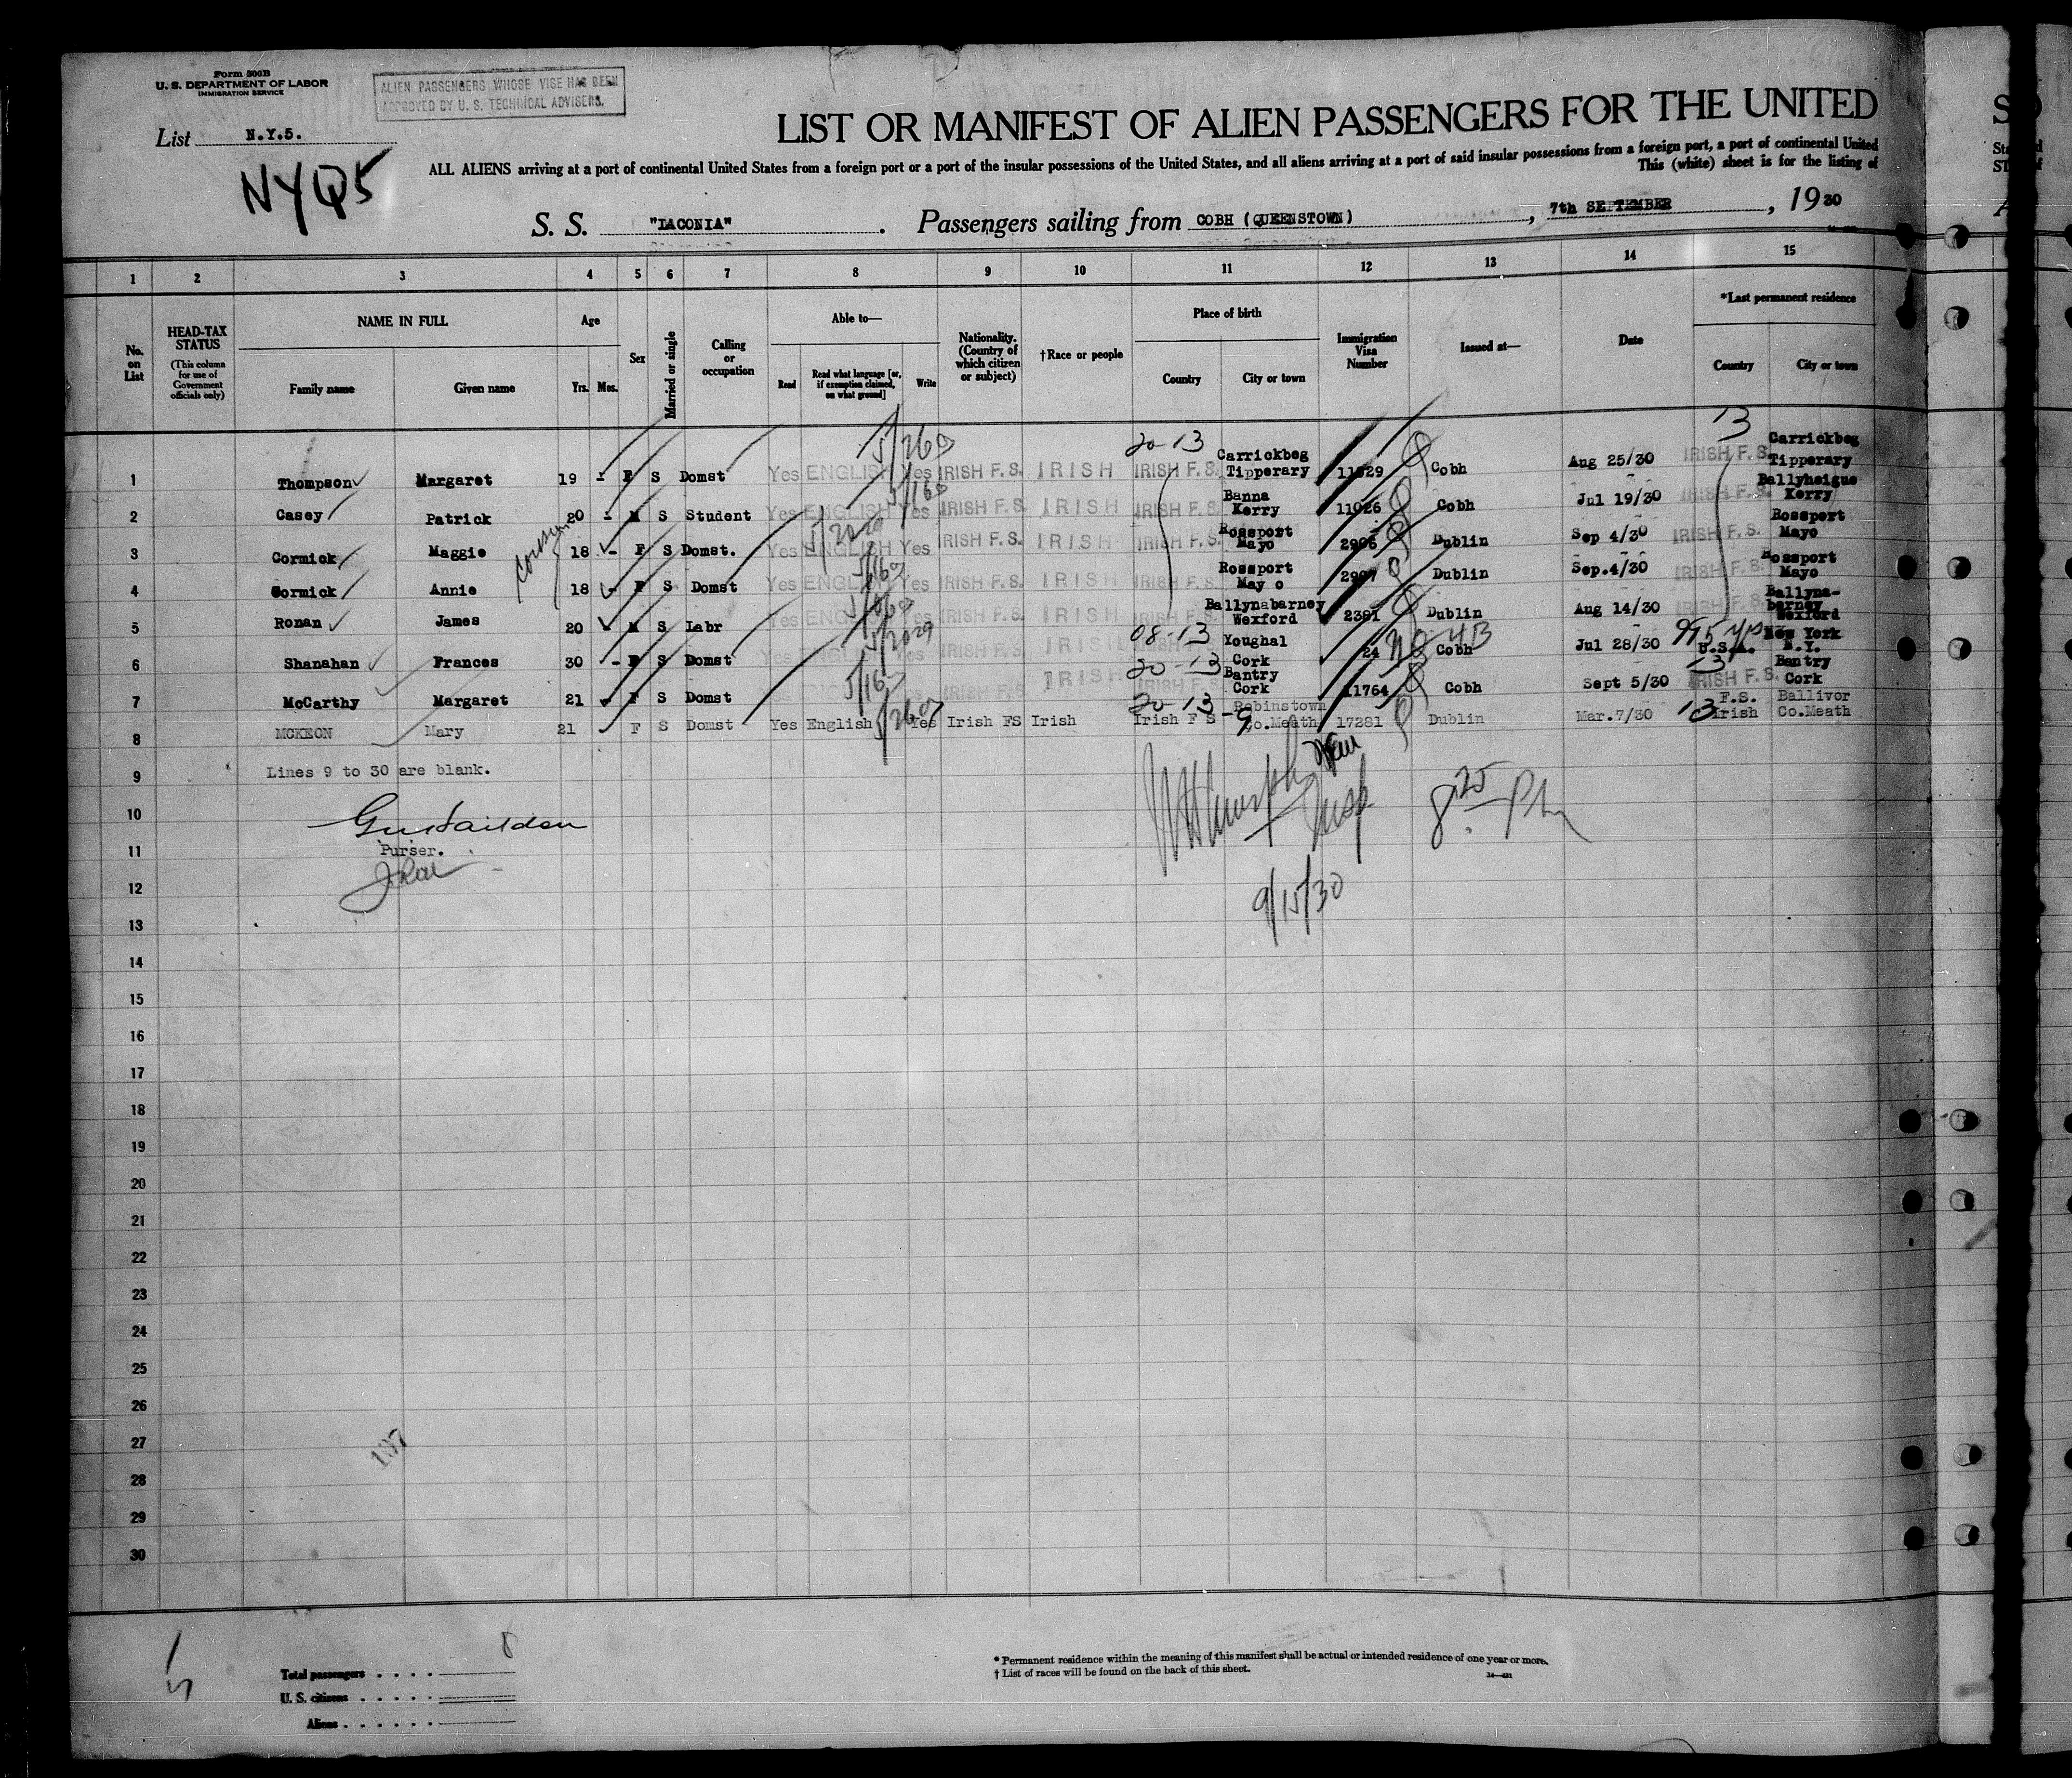 Form 500B
U. S. DEPARTMENT OF LABOR
IMMIGRATION SERVICE
ALIEN PASSENGERS WHOSE VISE HAS BEEN
APPROVED BY U. S. TECHNICAL ADVISERS.
List N.Y.5.
NYQ5
LIST OR MANIFEST OF ALIEN PASSENGERS FOR THE UNITED
ALL ALIENS arriving at a port of continental United States from a foreign port or a port of the insular possessions of the United States, and all aliens arriving at a port of said insular possessions from a foreign port, a port of continental United
This (white) sheet is for the listing of
S. S. "LACONIA" . Passengers sailing from COBH (QUEENSTOWN) , 7th SEPTEMBER , 1930
1 2 3 4 5 6 7 8 9 10 11 12 13 14 15
No. on List
HEAD-TAX STATUS
(This column for use of Government officials only)
NAME IN FULL
Family name Given name
Age
Yrs. Mos.
Sex
Married or single
Calling or occupation
Able to—
Read Read what language [or, if exemption claimed, on what ground] Write
Nationality. (Country of which citizen or subject)
†Race or people
Place of birth
Country City or town
Immigration Visa Number
Issued at—
Date
*Last permanent residence
Country City or town
1 Thompson Margaret 19 - F S Domst Yes ENGLISH Yes IRISH F.S. IRISH 20-13 IRISH F.S. Carrickbeg Tipperary Cobh Aug 25/30 13 IRISH F.S. Carrickbeg Tipperary
2 Casey Patrick 20 - M S Student Yes ENGLISH Yes IRISH F.S. IRISH IRISH F.S. Banna Kerry 11026 Cobh Jul 19/30 IRISH F.S. Ballyheigue Kerry
3 Cormick Maggie 18 - F S Domst. Yes ENGLISH Yes IRISH F.S. IRISH IRISH F.S. Rossport Mayo 2906 Dublin Sep 4/30 IRISH F.S. Rossport Mayo
4 Cormick Annie 18 - F S Domst Yes ENGLISH Yes IRISH F.S. IRISH IRISH F.S. Rossport May o 2907 Dublin Sep.4/30 IRISH F.S. Rossport Mayo
5 Ronan James 20 - M S Labr Yes ENGLISH Yes IRISH F.S. IRISH IRISH F.S. Ballynabarney Wexford 2381 Dublin Aug 14/30 IRISH F.S. Ballyna-barney Wexford
6 Shanahan Frances 30 - F S Domst Yes ENGLISH Yes IRISH 08-13 Youghal Cork 24 NQ 4B Cobh Jul 28/30 U.S.A. New York N.Y.
7 McCarthy Margaret 21 F S Domst IRISH F.S. IRISH 20-13 IRISH F.S. Bantry Cork 11764 Cobh Sept 5/30 13 IRISH F.S. Bantry Cork
8 MCKEON Mary 21 F S Domst Yes English Yes Irish FS Irish 20-13 Irish F S Robinstown Co.Meath 17281 Dublin Mar.7/30 13 F.S. Irish Ballivor Co.Meath
9 Lines 9 to 30 are blank.
10
11 Purser.
12
9/15/30
13
14
15
16
17
18
19
20
21
22
23
24
25
26
27
28
29
30
197
Total passengers . . . . 8
U. S. citizens . . . . .
Aliens . . . . . .
* Permanent residence within the meaning of this manifest shall be actual or intended residence of one year or more.
† List of races will be found on the back of this sheet.